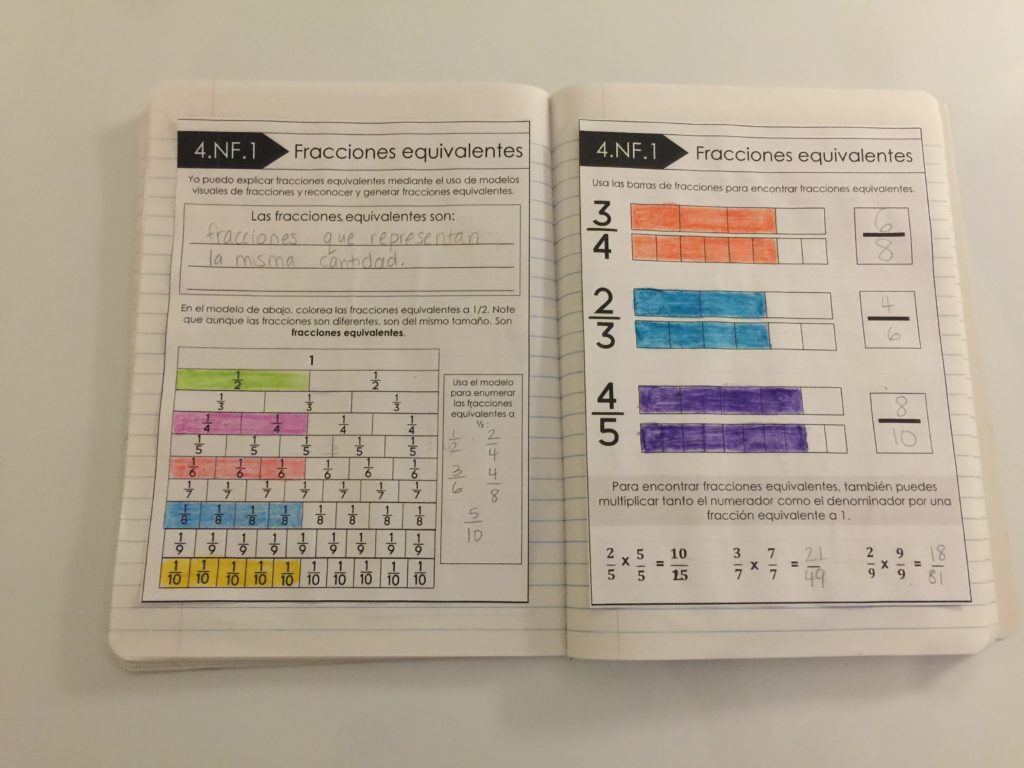 4.NF.1 Fracciones equivalentes
Yo puedo explicar fracciones equivalentes mediante el uso de modelos
visuales de fracciones y reconocer y generar fracciones equivalentes.
Las fracciones equivalentes son:
fracciones que representan
la misma cantidad.
En el modelo de abajo, colorea las fracciones equivalentes a 1/2. Note
que aunque las fracciones son diferentes, son del mismo tamaño. Son
fracciones equivalentes.
1
1/2 1/2
1/3 1/3 1/3
1/4 1/4 1/4 1/4
1/5 1/5 1/5 1/5 1/5
1/6 1/6 1/6 1/6 1/6 1/6
1/7 1/7 1/7 1/7 1/7 1/7 1/7
1/8 1/8 1/8 1/8 1/8 1/8 1/8 1/8
1/9 1/9 1/9 1/9 1/9 1/9 1/9 1/9 1/9
1/10 1/10 1/10 1/10 1/10 1/10 1/10 1/10 1/10 1/10
Usa el modelo
para enumerar
las fracciones
equivalentes a
½:
1/2 . 2/4
3/6 4/8
5/10
4.NF.1 Fracciones equivalentes
Usa las barras de fracciones para encontrar fracciones equivalentes.
3/4 6/8
2/3 4/6
4/5 8/10
Para encontrar fracciones equivalentes, también puedes
multiplicar tanto el numerador como el denominador por una
fracción equivalente a 1.
2/5 x 5/5 = 10/15 3/7 x 7/7 = 21/49 2/9 x 9/9 = 18/81